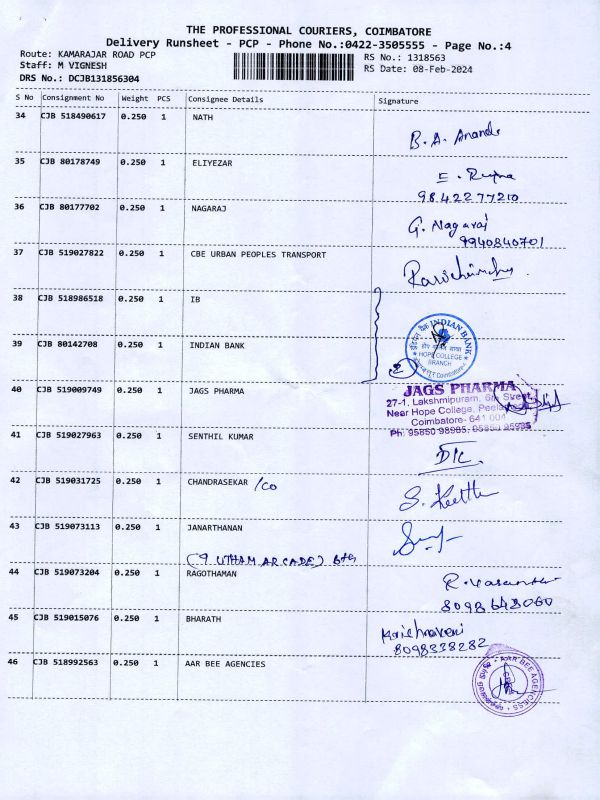 THE PROFESSIONAL COURIERS, COIMBATORE
Delivery Runsheet - PCP - Phone No.:0422-3505555 - Page No.:4
Route: KAMARAJAR ROAD PCP RS No.: 1318563
Staff: M VIGNESH RS Date: 08-Feb-2024
DRS No.: DCJB131856304
S No Consignment No Weight PCS Consignee Details Signature
34 CJB 518490617 0.250 1 NATH
B. A. Anand
35 CJB 80178749 0.250 1 ELIYEZAR
9842277210
36 CJB 80177702 0.250 1 NAGARAJ
G. Nagaraj
9940840701
37 CJB 519027822 0.250 1 CBE URBAN PEOPLES TRANSPORT
38 CJB 518986518 0.250 1 IB
39 CJB 80142708 0.250 1 INDIAN BANK
INDIAN BANK
HOPE COLLEGE
BRANCH
2
40 CJB 519009749 0.250 1 JAGS PHARMA
JAGS PHARMA
27-1, Lakshmipuram, 6th Street,
Near Hope College,
Coimbatore- 641 004
41 CJB 519027963 0.250 1 SENTHIL KUMAR
42 CJB 519031725 0.250 1 CHANDRASEKAR /co
43 CJB 519073113 0.250 1 JANARTHANAN
44 CJB 519073204 0.250 1 RAGOTHAMAN
8098648060
45 CJB 519015076 0.250 1 BHARATH
Krishnaveni
8098338282
46 CJB 518992563 0.250 1 AAR BEE AGENCIES
AAR BEE AGENCIES